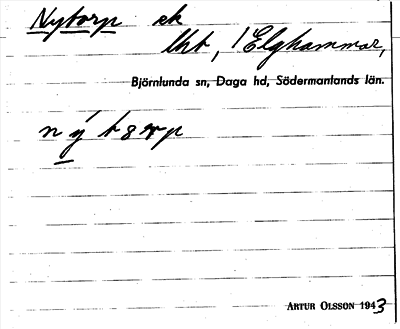 Nytorp ek
lht, 1 Elghammar,
Björnlunda sn, Daga hd, Södermanlands län.
n ý t
ARTUR OLSSON 1943